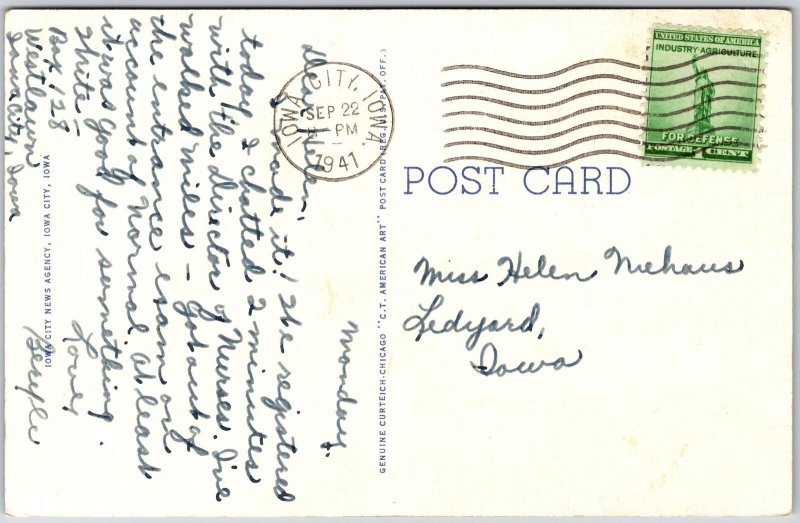 Monday.
Dear Helen,
I made it! I've registered
today & chatted 2 minutes
with the Director of Nurses. I've
walked miles – got out of
the entrance exam on
account of normal at least
it was good for something.
Write – Love,
Box 128
Westlawn
Iowa city, Iowa
IOWA CITY NEWS AGENCY, IOWA CITY, IOWA
GENUINE CURTEICH-CHICAGO "C.T. AMERICAN ART" POST CARD (REG. U.S. PAT. OFF.)
IOWA CITY, IOWA.
SEP 22
PM
1941
UNITED STATES OF AMERICA
INDUSTRY AGRICULTURE
FOR DEFENSE
POSTAGE 1 CENT
POST CARD
Miss Helen Niehaus
Ledyard,
Iowa